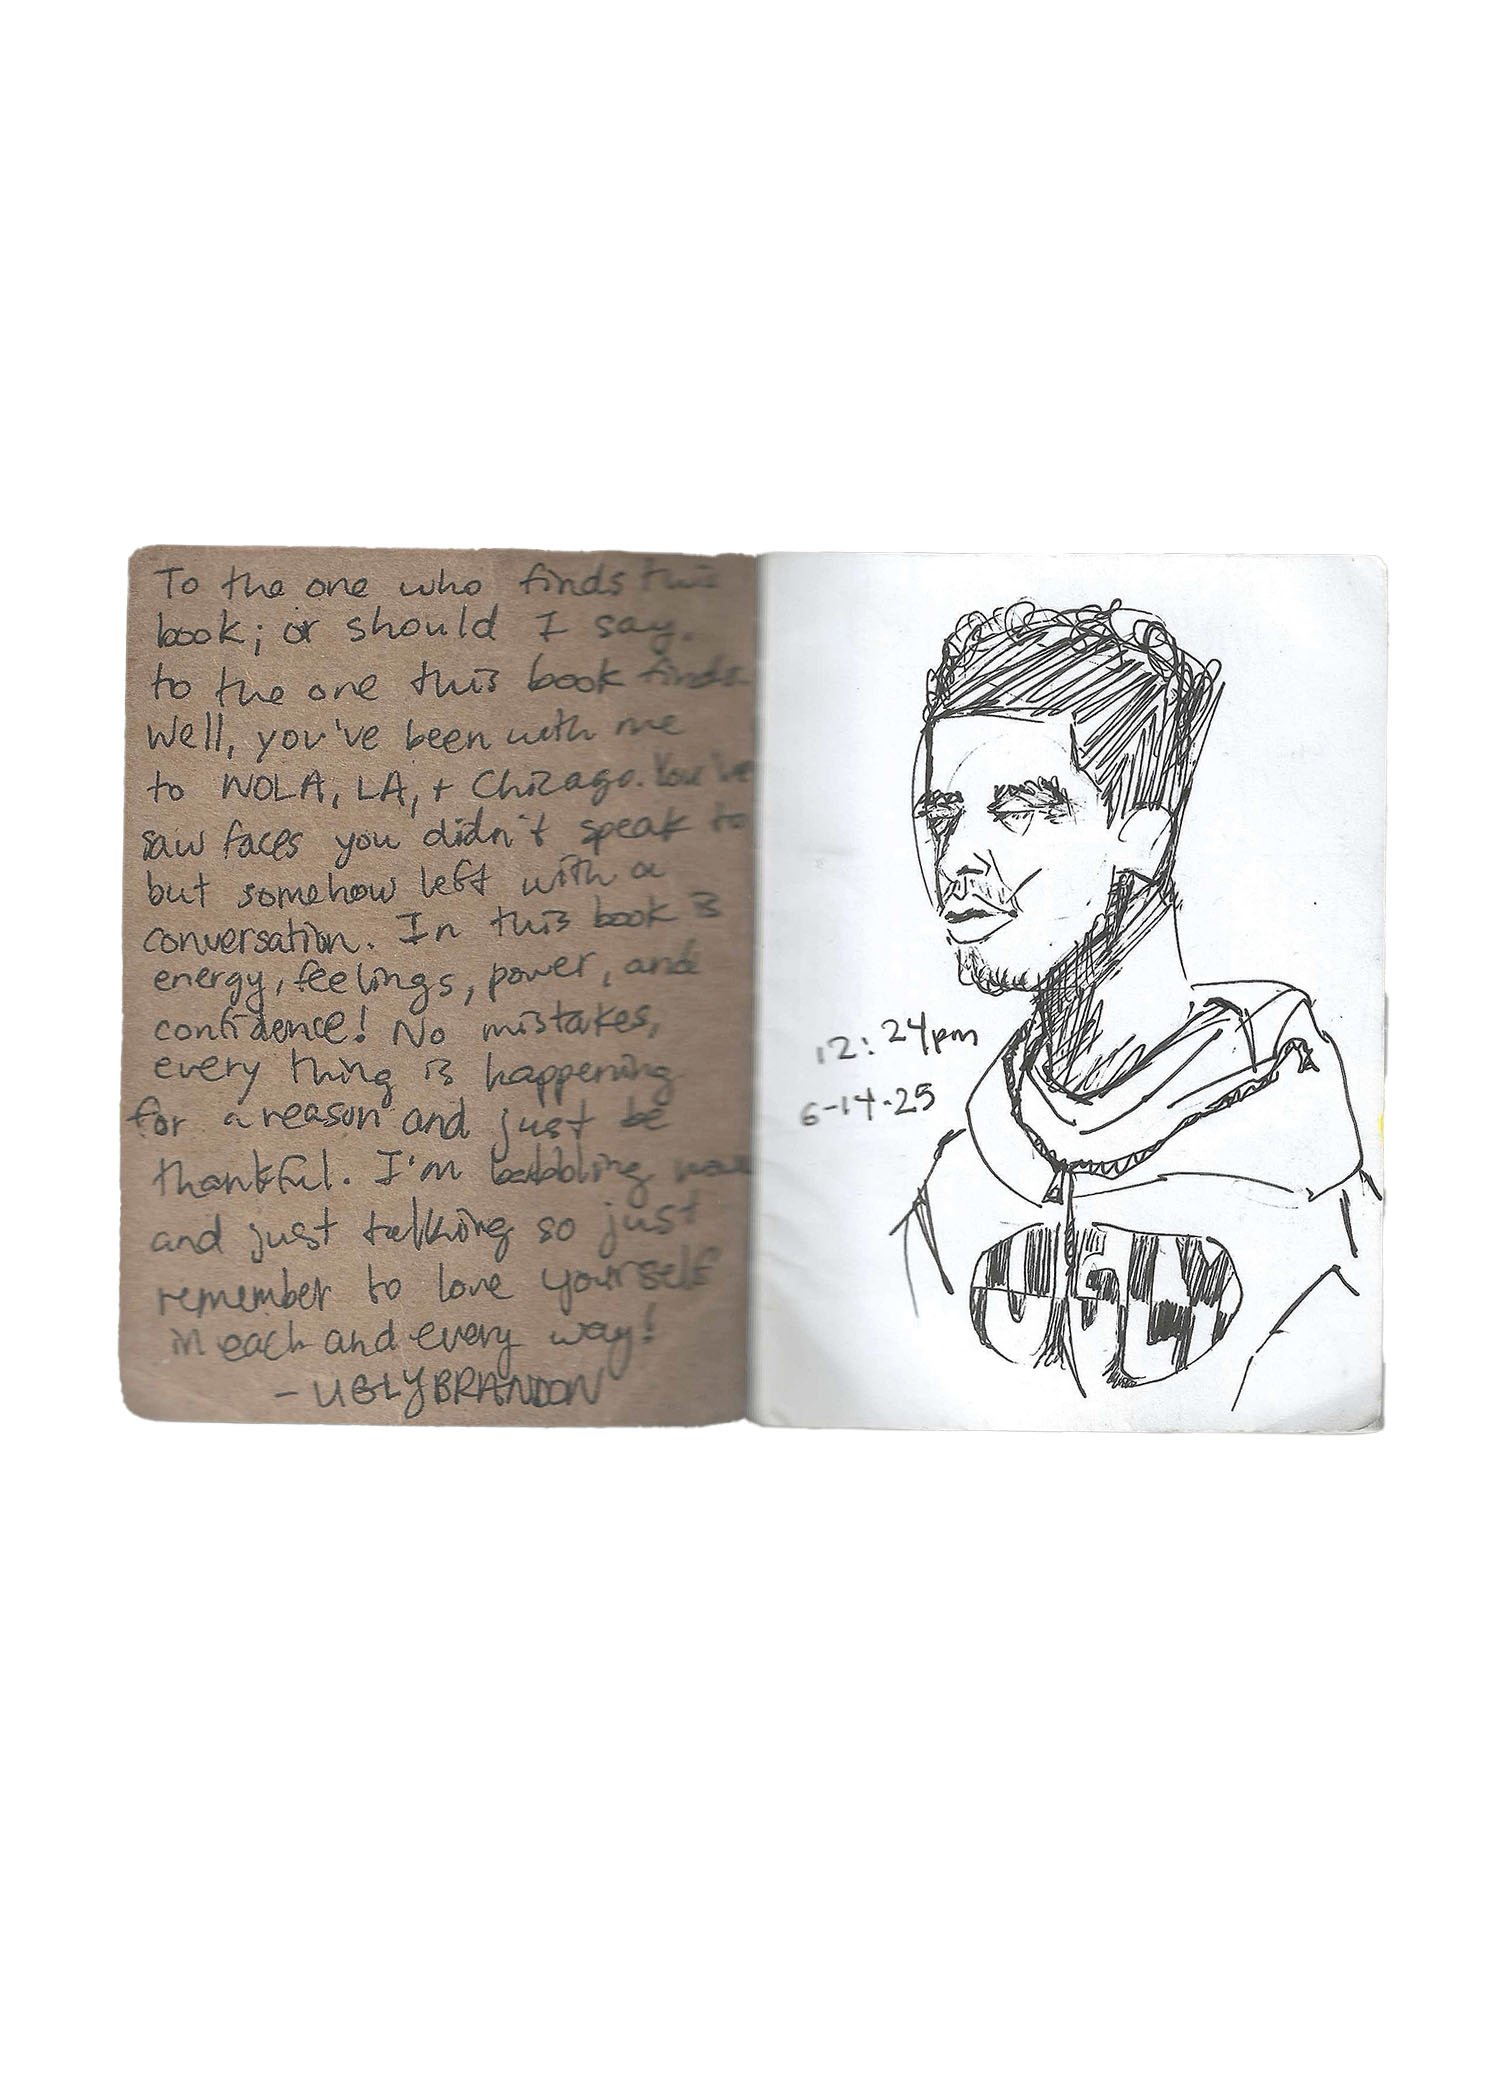 To the one who finds this
book; or should I say.
to the one this book finds.
Well, you've been with me
to NOLA, LA, + Chicago. You've
saw faces you didn't speak to
but somehow left with a
conversation. In this book is
energy, feelings, power, and
confidence! No mistakes,
every thing is happening
for a reason and just be
thankful. I'm babbling now
and just talking so just
remember to love yourself
in each and every way!
- UGLYBRANDON
12:24pm
6-14-25
UGLY